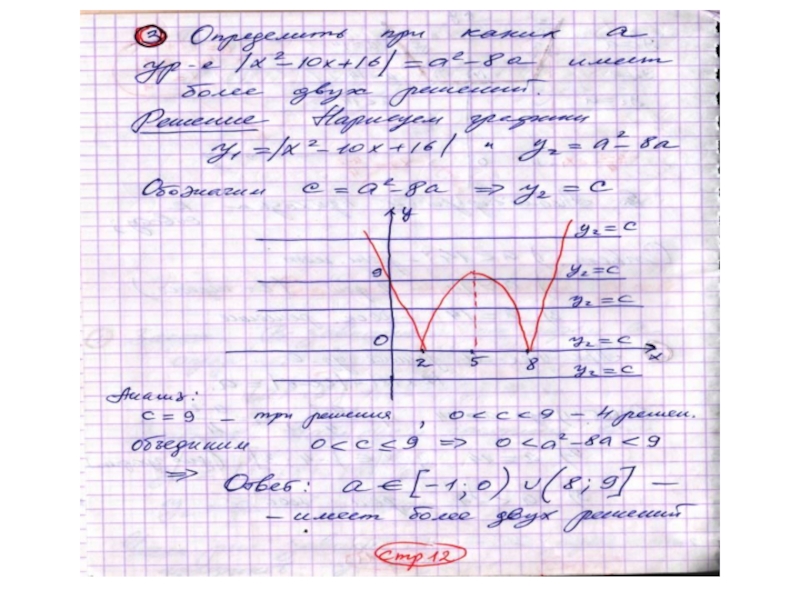 3 Определить при каких a
ур-е |x²-10x+16| = a²-8a имеет
более двух решений.
Решение Нарисуем графики
y₁ = |x²-10x+16| и y₂ = a²-8a
Обозначим c = a²-8a ⇒ y₂ = c
y
y₂ = c
9 y₂ = c
y₂ = c
0 y₂ = c
2 5 8 x
y₂ = c
Анализ:
c = 9 – три решения, 0 < c < 9 – 4 решен.
объединим 0 < c ≤ 9 ⇒ 0 < a²-8a < 9
⇒ Ответ: a ∈ [-1; 0) ∪ (8; 9] –
– имеет более двух решений
стр 12